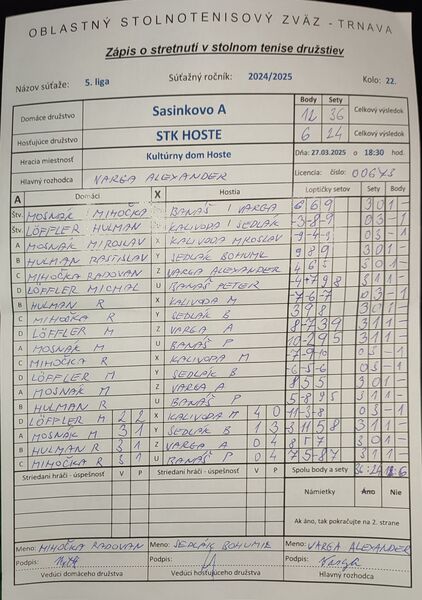 OBLASTNÝ STOLNOTENISOVÝ ZVÄZ - TRNAVA
Zápis o stretnutí v stolnom tenise družstiev
Názov súťaže: 5. liga Súťažný ročník: 2024/2025 Kolo: 22.
Body Sety
Domáce družstvo Sasinkovo A 12 36 Celkový výsledok
Hosťujúce družstvo STK HOSTE 6 24 Celkový výsledok
Hracia miestnosť Kultúrny dom Hoste Dňa: 27.03.2025 o 18:30 hod.
Hlavný rozhodca VARGA ALEXANDER Licencia: číslo: 00645
A Domáci X Hostia Loptičky setov Sety Body
Štv. MOSNÁK / MIHOČKA BANÁŠ / VARGA 6 6 9 3 0 1 -
Štv. LÖFFLER HULMAN KALIVODA / SEDLÁK -3 -8 -9 0 3 - 1
A MOSNÁK MIROSLAV X KALIVODA MIROSLAV 0 3 - 1
B HULMAN RASTISLAV Y SEDLÁK BOHUMIL 9 8 9 3 0 1 -
C MIHOČKA RADOVAN Z VARGA ALEXANDER 3 0 1 -
D LÖFFLER MICHAL U BANÁŠ PETER -4 +7 9 8 3 1 1 -
B HULMAN R X KALIVODA M -7 -6 -7 0 3 - 1
C MIHOČKA R Y SEDLÁK B 3 9 8 3 0 1 -
D LÖFFLER M Z VARGA A 8 -7 3 9 3 1 1 -
A MOSNÁK M U BANÁŠ P 10 -2 9 5 3 1 1 -
C MIHOČKA R X KALIVODA M -7 -9 -10 0 3 - 1
D LÖFFLER M Y SEDLÁK B -6 -5 -6 0 3 - 1
A MOSNÁK M Z VARGA A 8 5 5 3 0 1 -
B HULMAN R U BANÁŠ P 5 -8 9 5 3 1 1 -
D LÖFFLER M 2 2 X KALIVODA M 4 0 -11 -3 -8 0 3 - 1
A MOSNÁK M 3 1 Y SEDLÁK B 1 3 3 1 1 -
B HULMAN R 3 1 Z VARGA A 0 4 8 5 7 3 0 1 -
C MIHOČKA R 3 1 U BANÁŠ P 0 4 7 5 -8 7 3 1 1 -
Striedaní hráči - úspešnosť V P Striedaní hráči - úspešnosť V P Spolu body a sety 36:24 12:6
Námietky Áno Nie
Ak áno, tak pokračujte na 2. strane
Meno: MIHOČKA RADOVAN Meno: SEDLÁK BOHUMIL Meno: VARGA ALEXANDER
Podpis: Podpis: Podpis: Varga
Vedúci domáceho družstva Vedúci hosťujúceho družstva Hlavný rozhodca